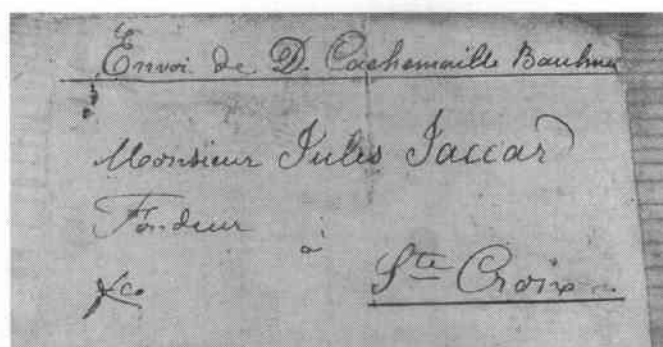 Envoi de D. Cachemaille Baulmes
Monsieur Jules Jaccard
Fondeur
à
Ste Croix
fco